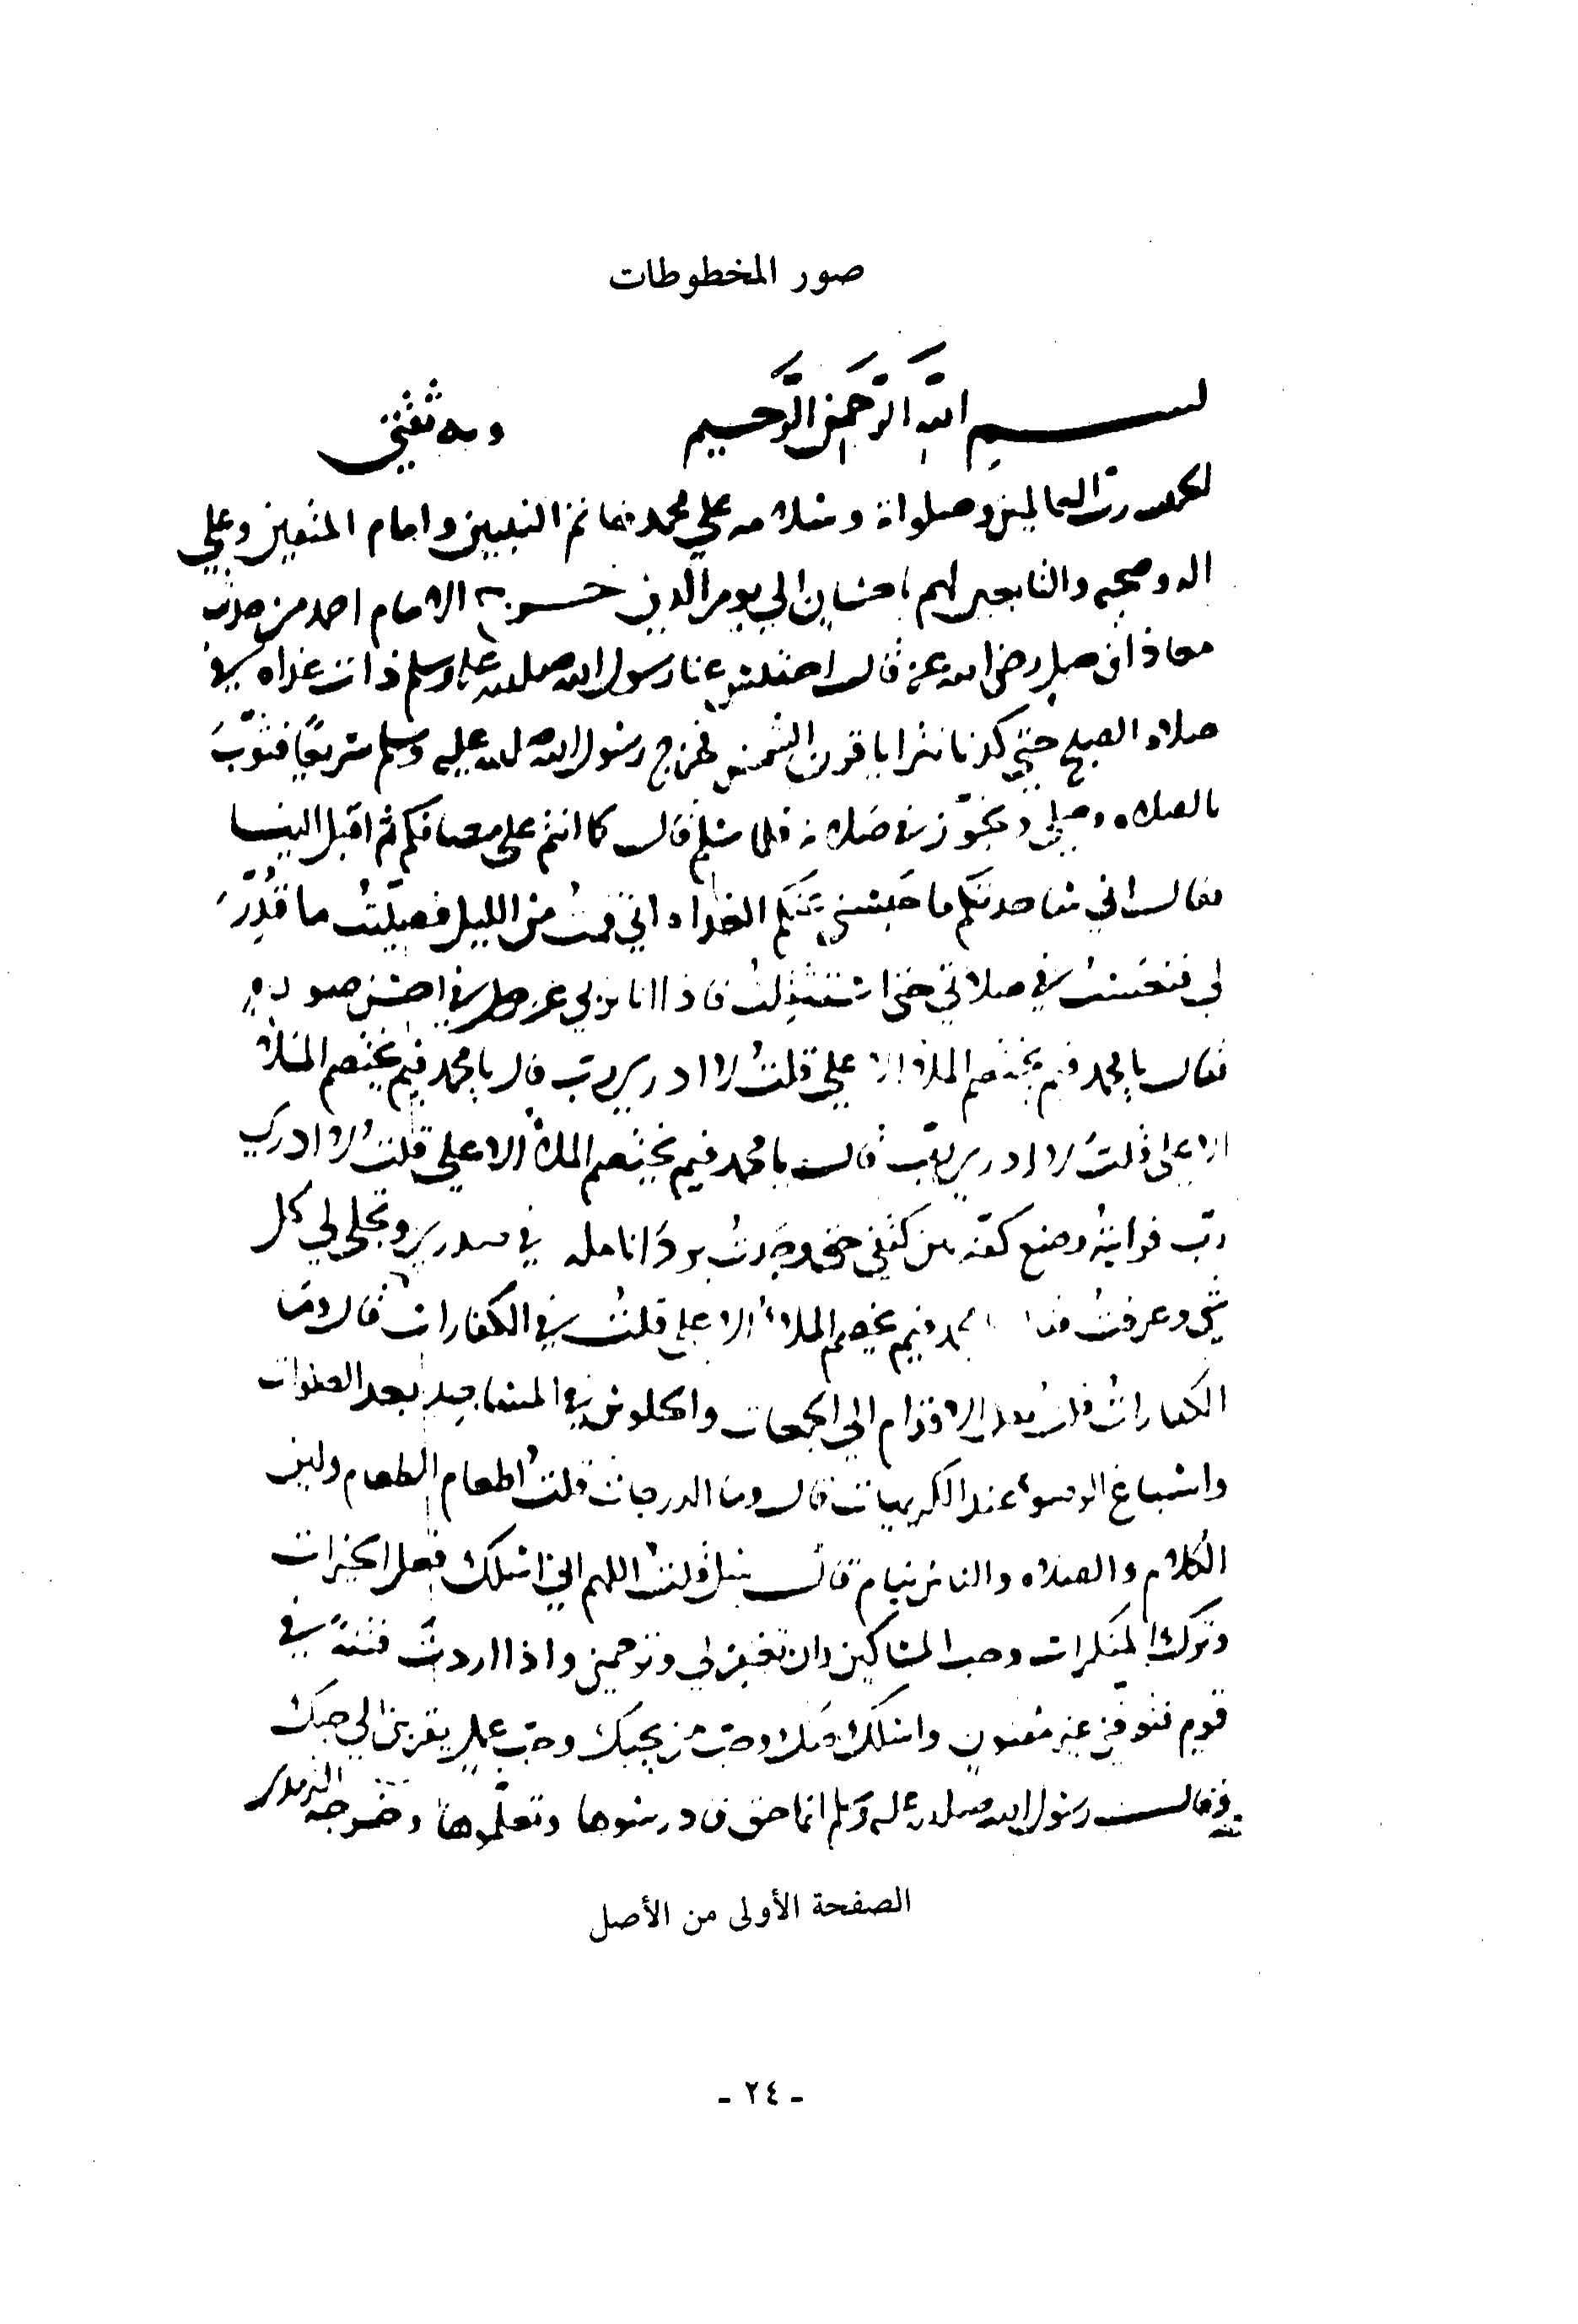 صور المخطوطات
بسم الله الرَّحمن الرَّحيم وبه ثقتي
الحمد لله رب العالمين وصلواته وسلامه علي محمد خاتم النبيين وامام المتقين وعلي
اله وصحبه والتابعين لهم باحسانٍ الي يوم الدين خرج الامام احمد من حديث
معاذ ابن جبل رضي الله عنه قال احتبس عنا رسول الله صلى الله عليه وسلم ذات غداه في
صلاه الصبح حتي كدنا نترايا قرن الشمس فخرج رسول الله صلى الله عليه وسلم سريعًا فثوّبَ
بالصلاه وصلي وتجوّز في صلاته فلما سلم قال كما انتم على مصافكم ثم اقبل الينا
فقال اني ساحدثكم ما حبسني عنكم الغداه اني قمتُ من الليل فصلّيتُ ما قُدِّرَ
لي فنعستُ في صلاتي حتى استثقلتُ فاذا انا بربي عز وجل في احسن صورهٍ
فقال يا محمد فيم يختصم الملأ الاعلي قلتُ لا ادري رب قال يا محمد فيم يختصم الملأ
الاعلى قلتُ لا ادري رب قال يا محمد فيم يختصم الملأ الاعلي قلتُ لا ادري
ربّ فرايتُه وضع كفّه بين كتفيّ حتى وجدتُ بردَ انامله في صدري وتجلى لي كل
شي وعرفتُ فقال يا محمد فيم يختصم الملأ الاعلي قلتُ في الكفارات قال وما
الكفاراتُ قلت نقل الاقدام الي الجمعات والجلوس في المساجد بعد الصلوات
واسباغ الوضوء عند الكريهات قال وما الدرجات قلتُ اطعام الطعام ولين
الكلام والصلاه والناس نيام قال سل قلتُ اللهم اني اسلك فعل الخيرات
وترك المنكرات وحب المساكين وان تغفر لي وترحمني واذا اردتَ فتنةً في
قوم فتوفني غير مفتونٍ واسلك حبك وحبّ من يحبك وحبّ عملٍ يقربني الي حبك
وقال رسول الله صلى الله عليه وسلم انها حق فادرسوها وتعلّموها وخرجه الترمذي
الصفحة الأولى من الأصل
- ٢٤ -